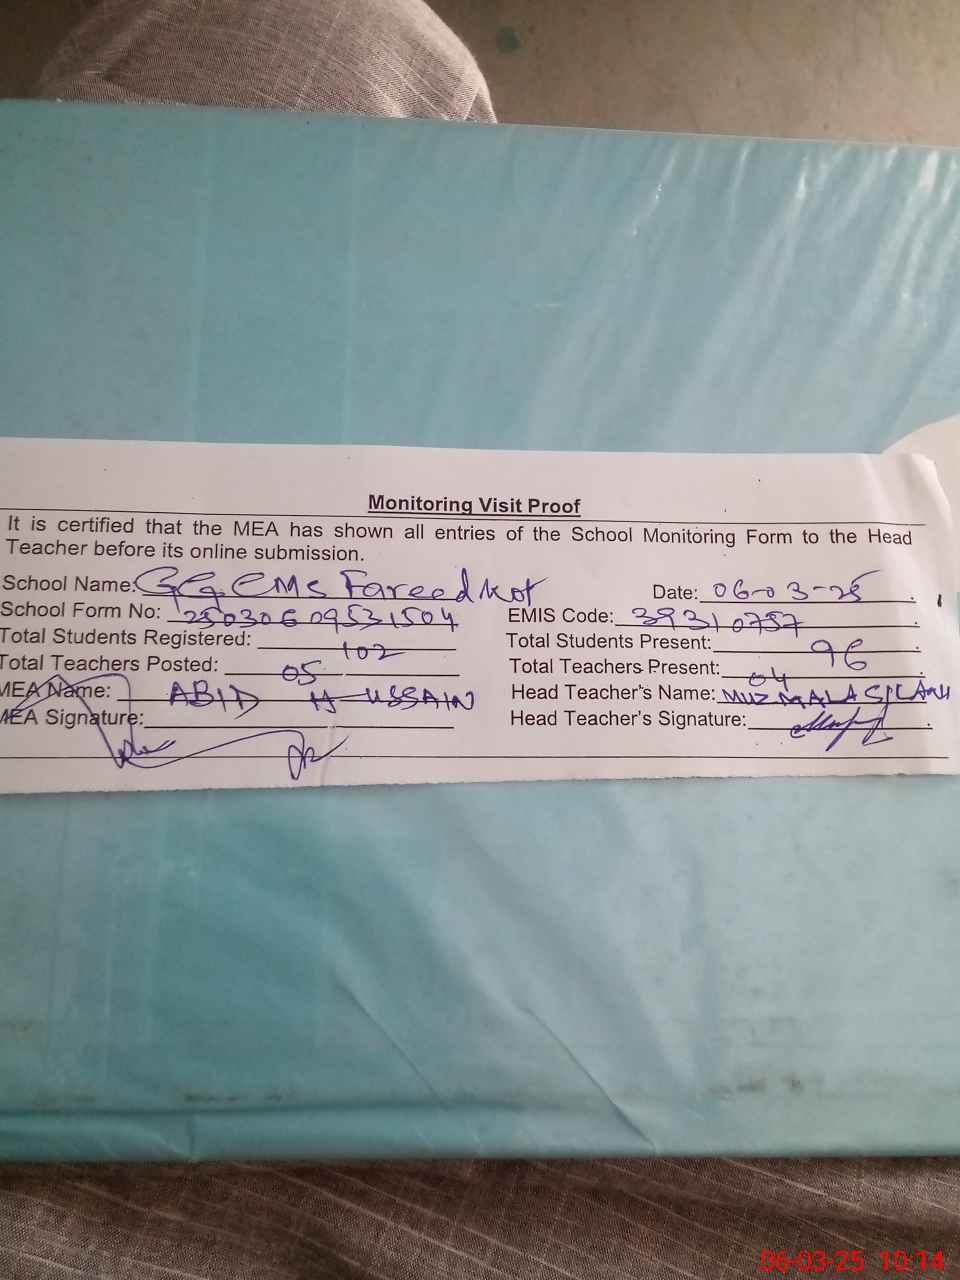 Monitoring Visit Proof
It is certified that the MEA has shown all entries of the School Monitoring Form to the Head
Teacher before its online submission.
School Name: GG. CMS Fareed kot Date: 06-03-25
School Form No: 25030609531504 EMIS Code: 39310757
Total Students Registered: 102 Total Students Present: 96
Total Teachers Posted: 05 Total Teachers Present: 04
MEA Name: ABID HUSSAIN Head Teacher's Name: MUZMALA
MEA Signature: Head Teacher's Signature:
06-03-25 10:14